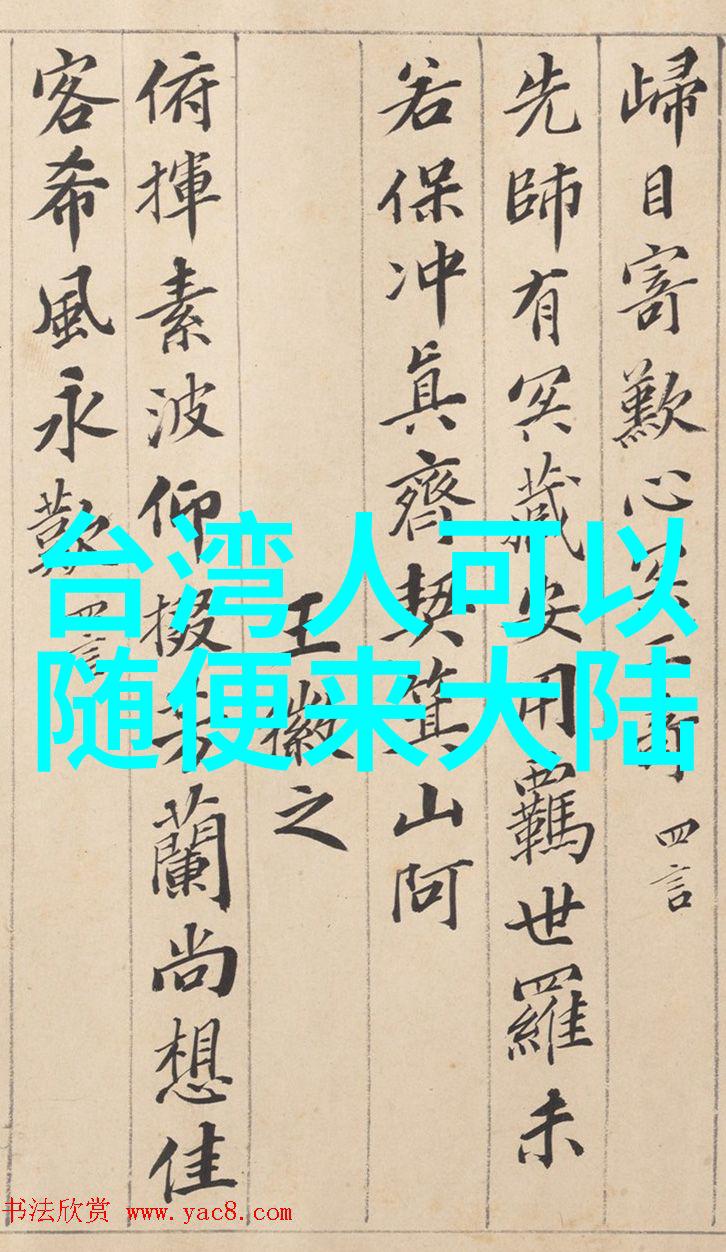 歸目寄歎心冥二奇 四言
先師有冥藏安用羈世羅未
若保冲眞齊契箕山阿
王徽之
俯揮素波仰掇芳蘭尚想佳
客希風永歎 四言
台湾人可以
随便来大陆
书法欣赏 www.yac8.com